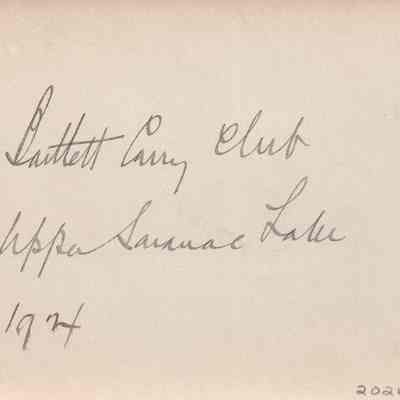 Bartlett Carry Club
Upper Saranac Lake
1924
202